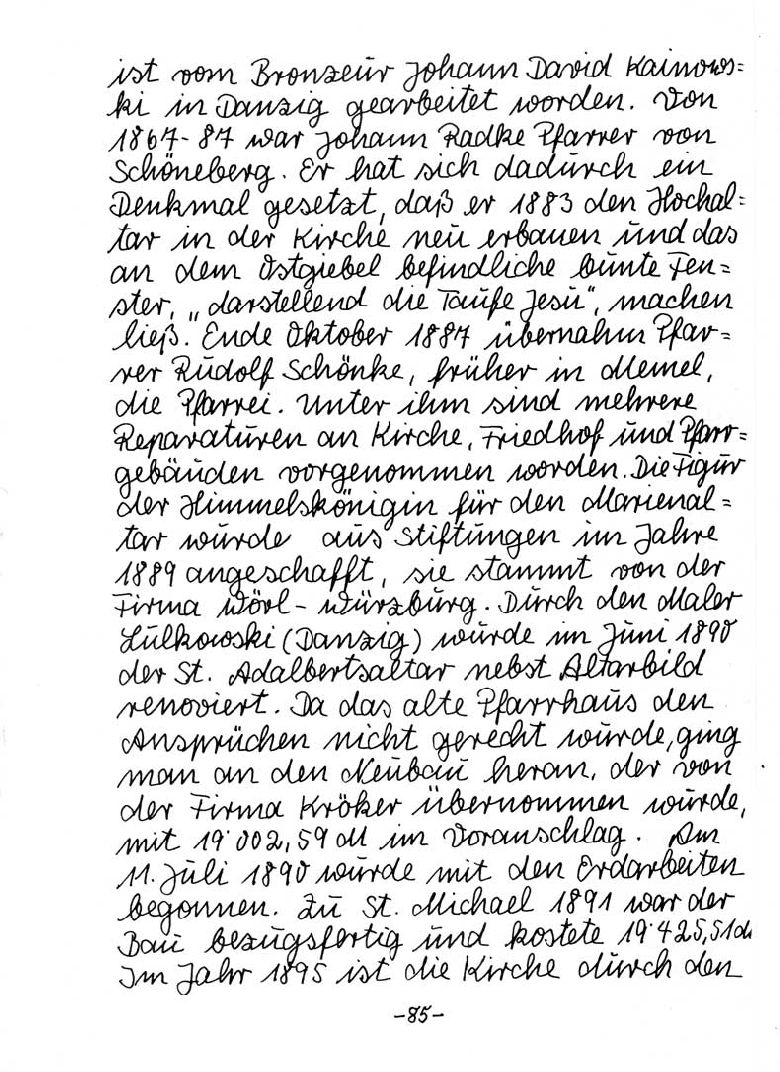 ist vom Bronzeur Johann David Kainows=
ki in Danzig gearbeitet worden. Von
1867-87 war Johann Radke Pfarrer von
Schöneberg. Er hat sich dadurch ein
Denkmal gesetzt, daß er 1883 den Hochal=
tar in der Kirche neu erbauen und das
an dem Ostgiebel befindliche bunte Fen=
ster, „darstellend die Taufe Jesu“, machen
ließ. Ende Oktober 1887 übernahm Pfar=
rer Rudolf Schönke, früher in Memel,
die Pfarrei. Unter ihm sind mehrere
Reparaturen an Kirche, Friedhof und Pfarr=
gebäuden vorgenommen worden. Die Figur
der Himmelskönigin für den Marienal=
tar wurde aus Stiftungen im Jahre
1889 angeschafft, sie stammt von der
Firma Wörl-Würzburg. Durch den Maler
Lulkowski (Danzig) wurde im Juni 1890
der St. Adalbertsaltar nebst Altarbild
renoviert. Da das alte Pfarrhaus den
Ansprüchen nicht gerecht wurde, ging
man an den Neubau heran, der von
der Firma Kröker übernommen wurde,
mit 19·002,59 M im Voranschlag. Am
11. Juli 1890 wurde mit den Erdarbeiten
begonnen. Zu St. Michael 1891 war der
Bau bezugsfertig und kostete 19·425,51 M
Im Jahr 1895 ist die Kirche durch den
-85-